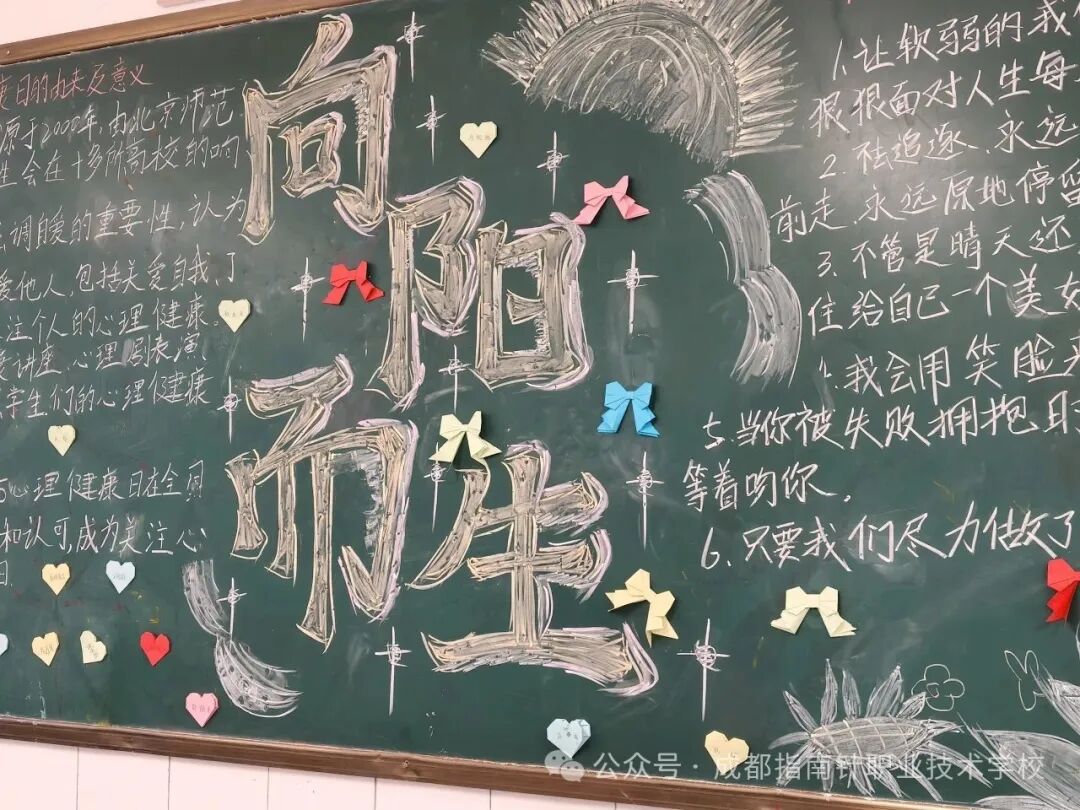 日的由来及意义
源于2000年,由北京师范
生会在十多所高校的响
调自爱的重要性,认为
爱他人,包括关爱自我,了
注个人的心理健康。
讲座、心理剧表演
学生们的心理健康
心理健康日在全国
和认可,成为关注心
日
向阳
而生
1.让软弱的我
狠狠面对人生每
2.祛追逐、永远
前走,永远原地停留
3.不管是晴天还
住给自己一个美
我会用笑脸
5.当你被失败拥抱时
等着吻你。
6.只要我们尽力做了
公众号·成都指南针职业技术学校